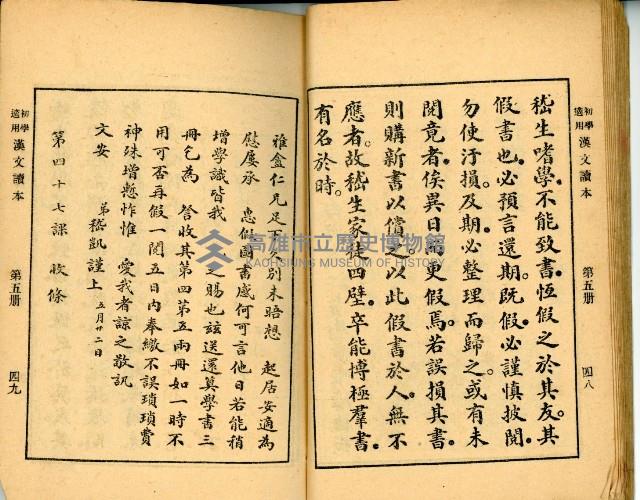 初學適用 漢文讀本 第五册 四八
嵇生嗜學。不能致書。恆假之於其友。其
假書也。必預言還期。既假必謹慎披閱。
勿使汙損。及期必整理而歸之。或有未
閱竟者。俟異日而更假焉。若誤損其書。
則購新書以償之。以此假書於人。無不
應者。故嵇生家徒四壁。卒能博極羣書。
有名於時。
雅盦仁兄足下 別來晤想 起居安適為
慰屢承 惠假國書感何可言他日若能稍
增學識皆我 之賜也茲送還算學書三
冊乞為 詧收其第四第五兩冊如一時不
用可否再假一閱五日內奉繳不誤瑣瑣費
神殊增慙怍惟 愛我者諒之敬訊
文安 弟嵇凱謹上 五月廿二日
第四十七課 收條
初學適用 漢文讀本 第五册 四九
高雄市立歷史博物館
KAOHSIUNG MUSEUM OF HISTORY